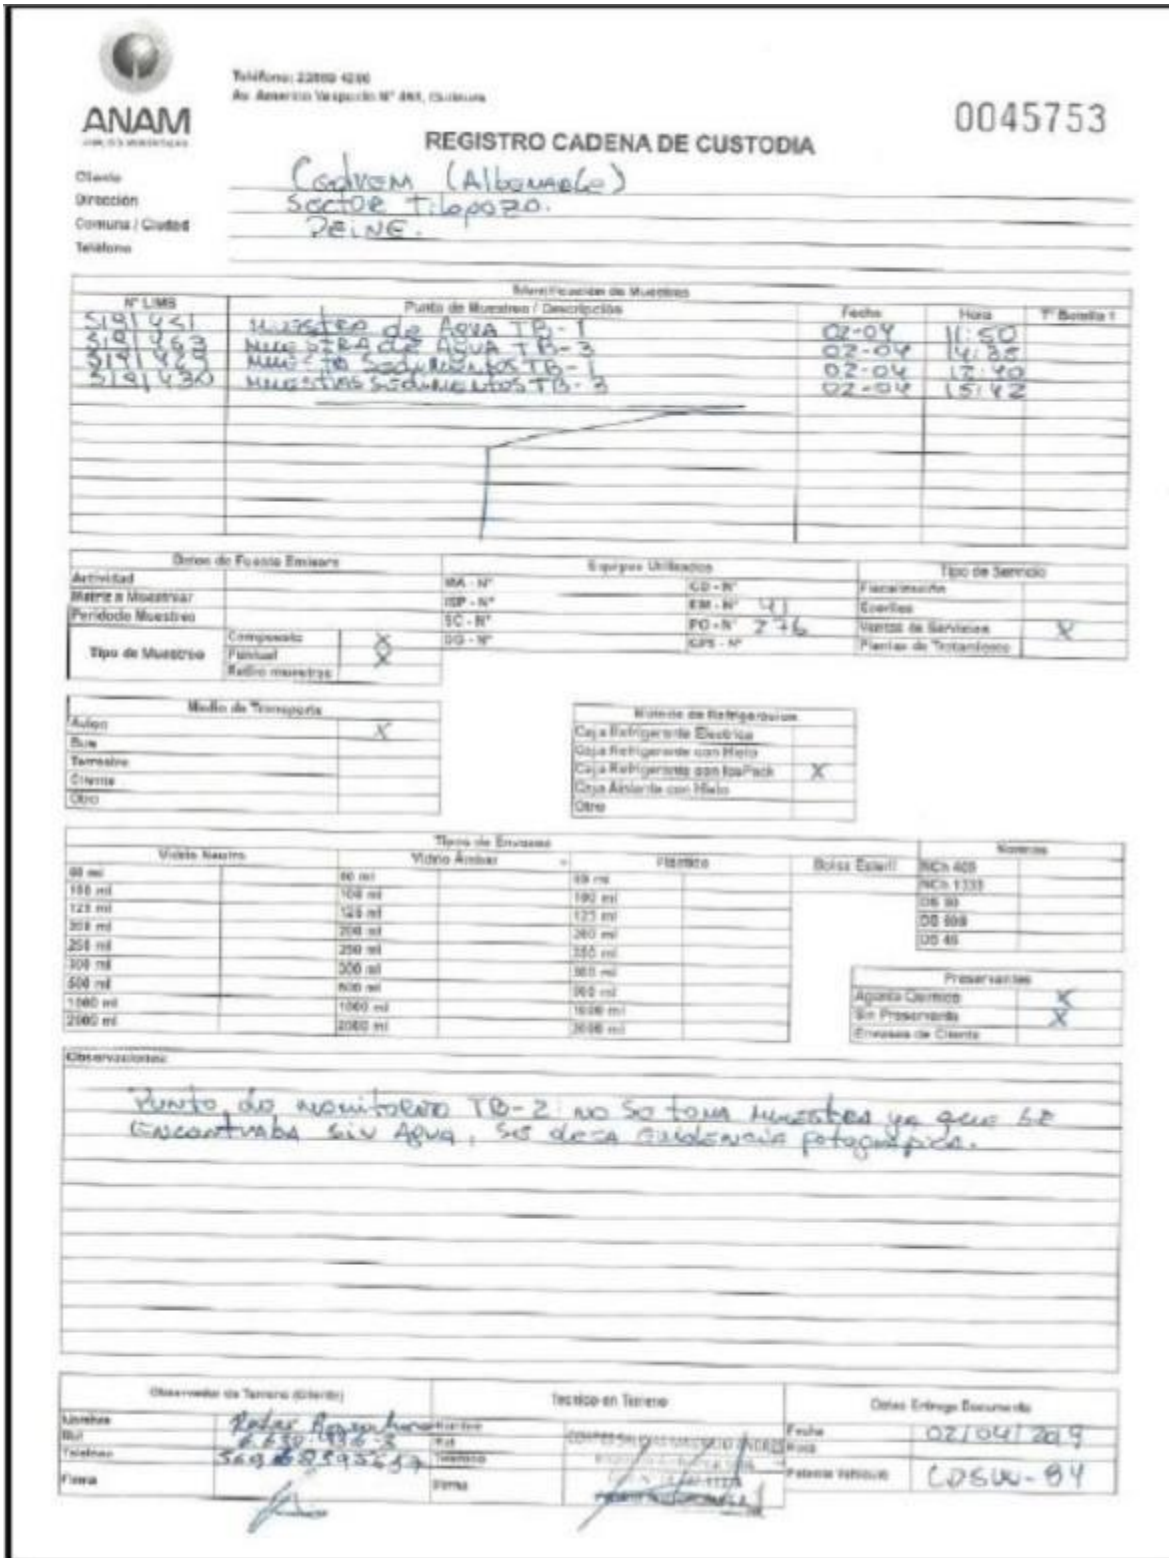 ANAM
Teléfono: 22890 4200
Av. Americo Vespucio N° 451, Quilicura
0045753
REGISTRO CADENA DE CUSTODIA
Cliente
(Albemarle)
Dirección Sector Tilopozo.
Comuna / Ciudad PEINE.
Teléfono
Identificación de Muestras
N° LIMS Punto de Muestreo / Descripción Fecha Hora T° Botella 1
MUESTRA de AGUA TB-1 02-04 11:50
MUESTRA de AGUA TB-3 02-04 14:35
Sedimentos TB-1 02-04 12:40
5191430 MUESTRAS SEDIMENTOS TB-3 02-04 15:42
Datos de Fuente Emisora
Actividad
Matriz a Muestrear
Periodo Muestreo
Tipo de Muestreo
Compuesto X
Puntual X
Retiro muestras
Equipos Utilizados
MA - N° CD - N°
ISP - N° EM - N° 41
SC - N° PO - N° 276
GG - N° GPS - N°
Tipo de Servicio
Fiscalización
Ecoriles
Ventas de Servicios X
Plantas de Tratamiento
Medio de Transporte
Avion X
Bus
Terrestre
Cliente
Otro
Metodo de Refrigeracion
Caja Refrigerante Electrica
Caja Refrigerante con Hielo
Caja Refrigerante con IcePack X
Caja Aislante con Hielo
Otro
Tipos de Envases
Vidrio Neutro Vidrio Ambar Plástico Bolsa Esteril
60 ml 60 ml 60 ml
100 ml 100 ml 100 ml
125 ml 125 ml 125 ml
200 ml 200 ml 200 ml
250 ml 250 ml 250 ml
300 ml 300 ml 300 ml
500 ml 500 ml 500 ml
1000 ml 1000 ml 1000 ml
2000 ml 2000 ml 2000 ml
Normas
NCh 409
NCh 1333
DS 90
DS 609
DS 46
Preservantes
Agente Quimico X
Sin Preservante X
Envases de Cliente
Observaciones:
Punto de monitoreo TB-2: no se toma muestra ya que se
encontraba sin Agua, se deja evidencia fotografica.
Observador de Terreno (Cliente) Tecnico en Terreno Datos Entrega Documento
Nombre Nombre Fecha 02/04/2019
Rut Rut Hora
Telefono Telefono Patente Vehiculo
Firma Firma